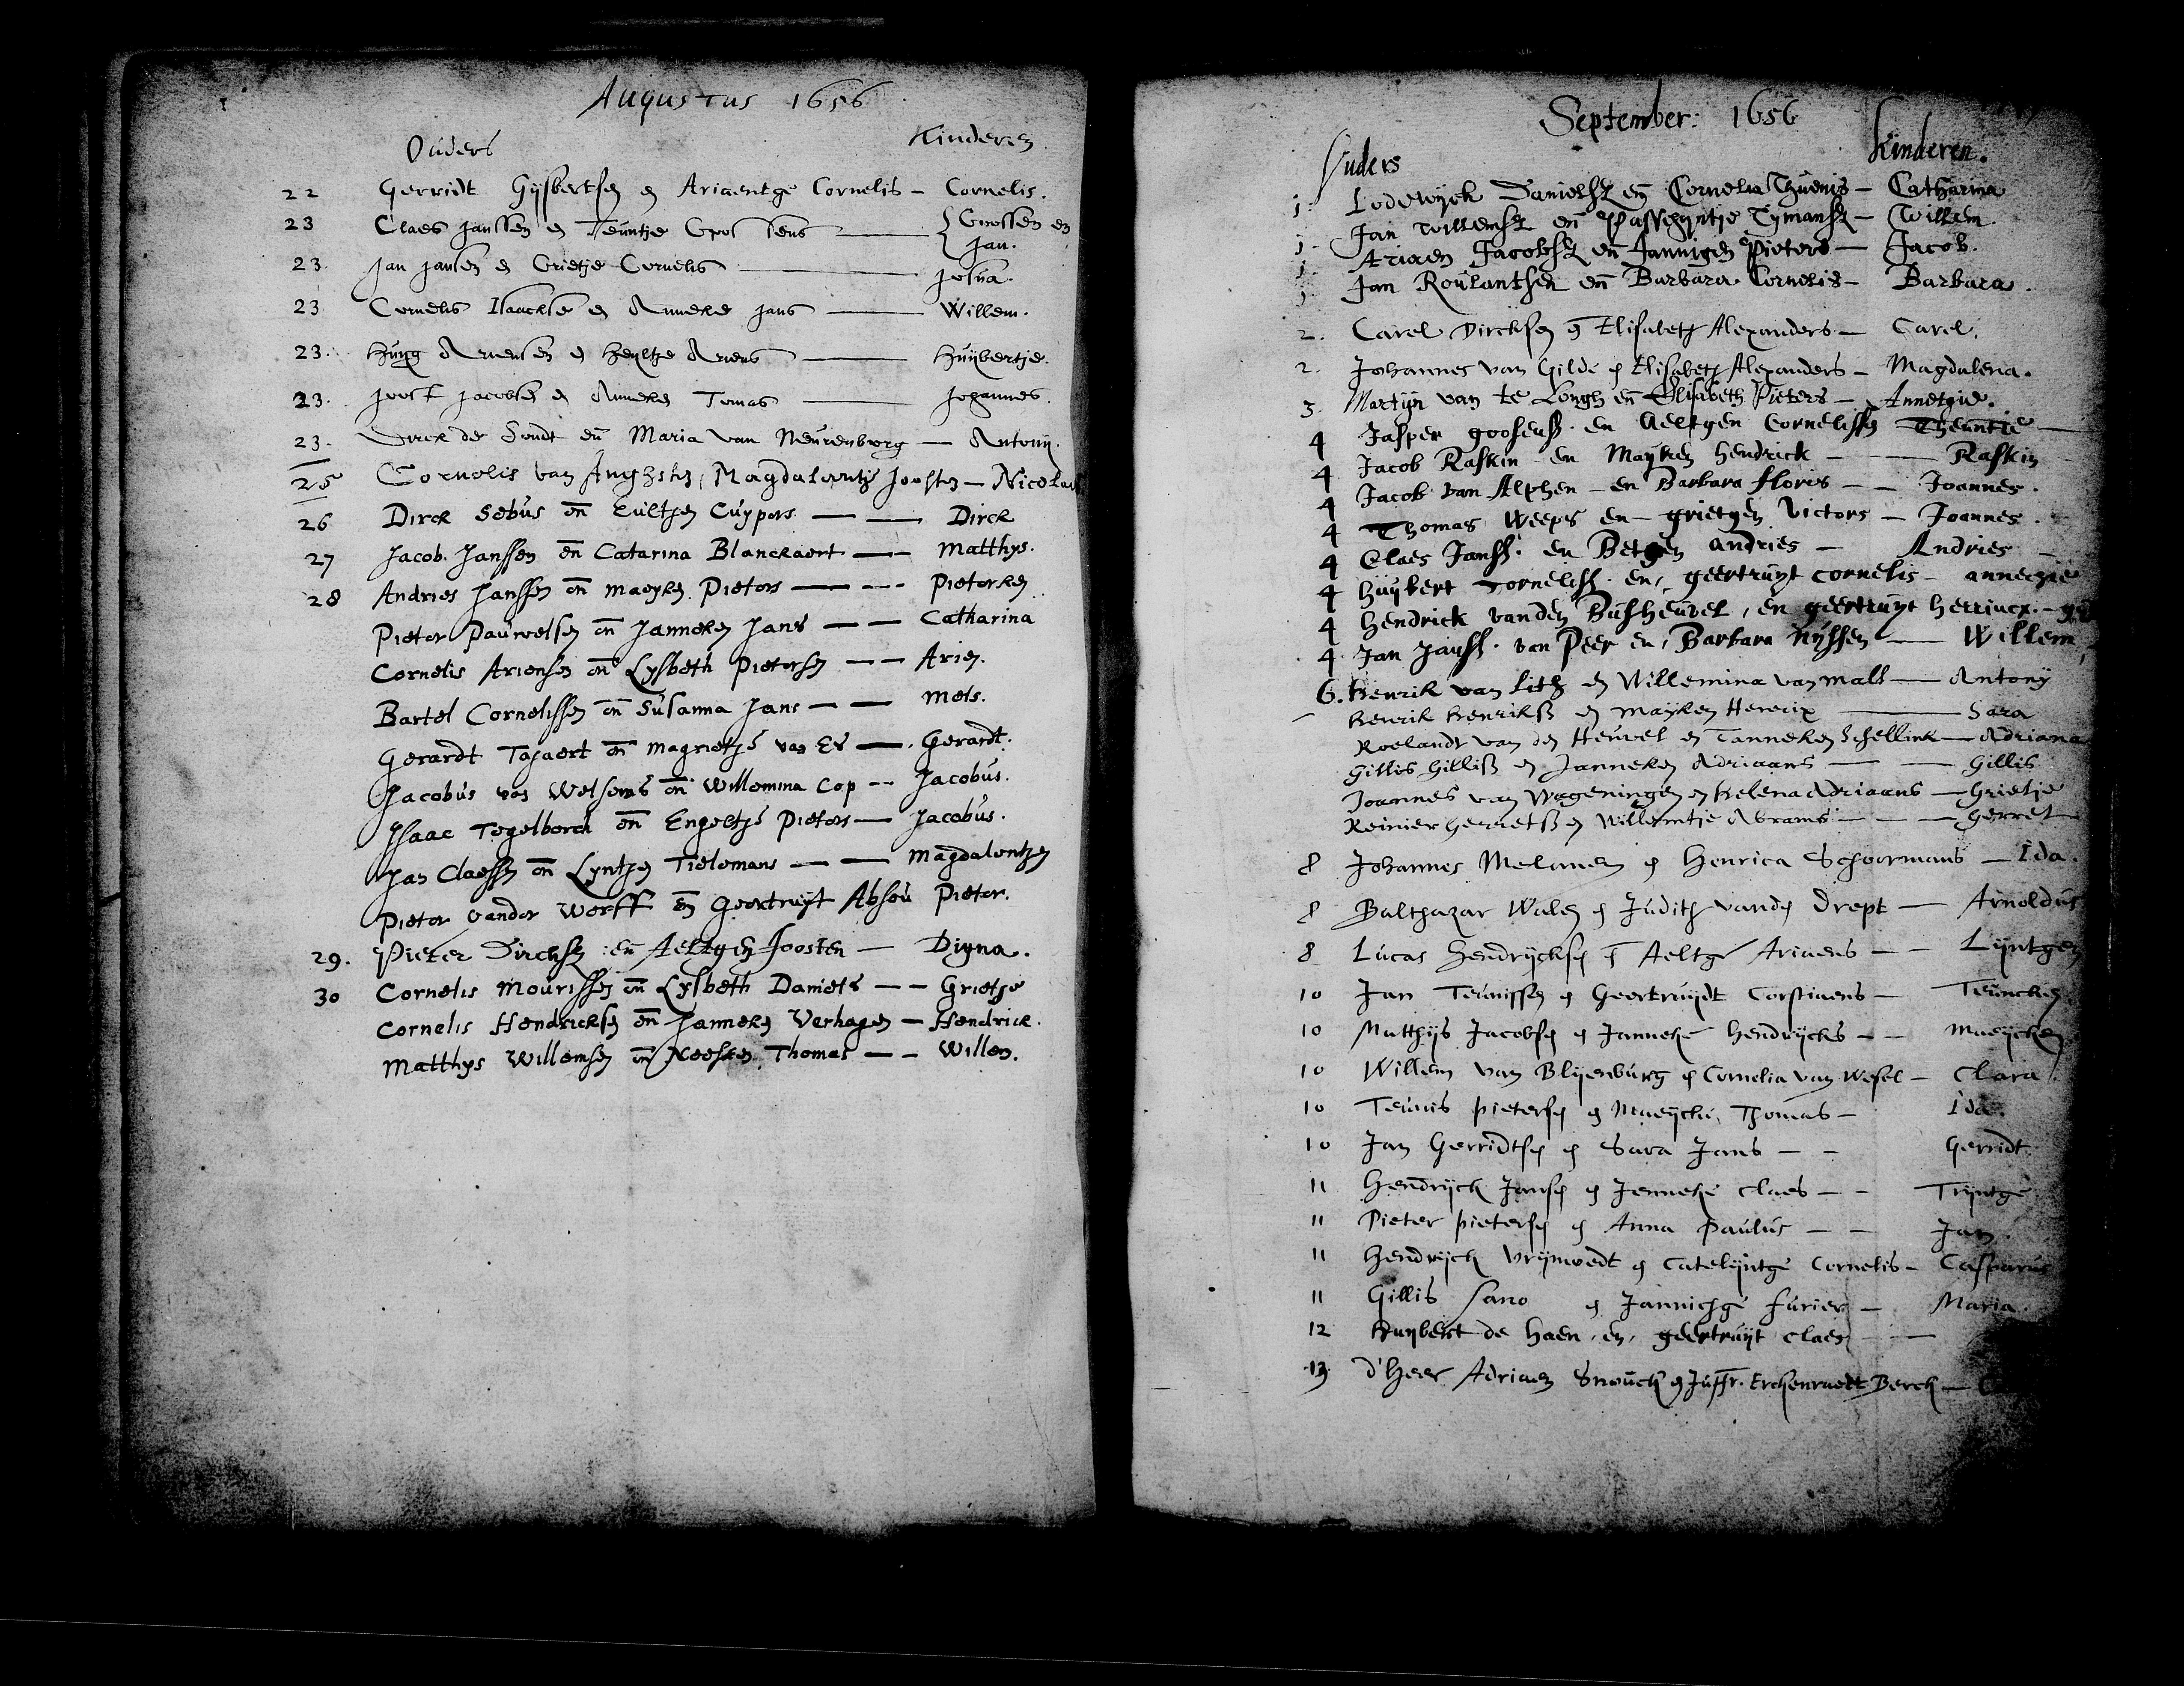 Augustus 1656
Ouders Kinderen
22 Gerridt Gijsbertsen en Ariaentge Cornelis – Cornelis.
23 Claes Janssen en Teuntje Goossens — Goossen en
Jan.
23. Jan Jansen en Grietje Cornelis — Josua.
23 Cornelis Isaackse en Anneke Jans — Willem.
23. Huyg Ariensen en Heyltje Ariens — Huijbertje.
23. Joost Jacobsen en Anneken Tomas — Johannes.
23. Dirck de Sondt en Maria van Neurenberg — Antony.
25 Cornelis van Magdaleentje Joosten — Nicolaes
26 Dirck Sebus en Cuypers — — Dirck
27 Jacob Janssen en Catarina Blanckaert — Matthys.
28 Andries Janssen en Maeyken Pieters — — Pieterken
Pieter Pauwelsen en Janneken Jans — — Catharina
Cornelis Ariensen en Lysbeth Pietersen — — Arien.
Bartel Cornelissen en Susanna Jans — — Mels.
Gerardt en Magrietje van Es — Gerardt.
Jacobus van en Willemina Cop — Jacobus.
Isaac Tegelberch en Engeltje Pieters — Jacobus.
Jan Claessen en Lyntjen Tielemans — — Magdalentjen
Pieter vander Werff en Geertruyt Pieter.
29. Pieter Dircksz en Aeltgen Joosten — Digna.
30 Cornelis Mourissen en Lysbeth Daniels — — Grietje
Cornelis Hendricksen en Janneken Verhagen — Hendrick.
Matthys Willemsen en Neesken Thomas — — Willem.
September: 1656
Ouders Kinderen.
1. Lodewijck Danielsz en Cornelia Thuenis — Catharina
1. Jan Willemsz en Tymansz — Willem.
1. Ariaen Jacobsz en Jannigen Pieters — Jacob.
1. Jan Roulantsen en Barbara Cornelis — Barbara.
2. Carel Dircksen en Elisabeth Alexanders — Carel.
2. Johannes van Gilde en Elisabeth Alexanders — Magdalena.
3. Martijn van te Longh en Elisabeth Pieters — Annetgie.
4 Jasper goosens en Aeltgen Cornelissen Theuntie —
4 Jacob Raskin en Mayken Hendrick — — Raskin
4 Jacob van Alphen — en Barbara floris — — Joannes.
4 Thomas Weeps en — grietgen Victors — Joannes.
4 Claes Janss. en Betgen Andries — Andries —
4 huybert Corneliss. en geertruyt cornelis — annechie
4 hendrick vanden Busheuvel, en geertruyt herrincx. —
4 Jan Janss. van Peer en, Barbara Nyssen — Willem
6. Henrik van Lith en Willemina van Mals — Antony
Henrik Henrikss en Mayken Henrix — Sara
Roelandt van den Heuvel en Tanneken Schellink — Adriana
Gillis Gilliss en Janneken Adriaans — — Gillis
Joannes van Wageningen en Helena Adriaans — Grietje
Reinier Gerretss en Willemtje Abrams — — Gerret
8 Johannes Melanen en Henrica Schoormans — Ida.
8 Balthazar Walen en Judith vanden Drept — Arnoldus
8 Lucas Hendrijcksen en Aeltge Ariaens — — Lijntgen
10 Jan Teunissen en Geertruydt Corstiaens — Teuncken
10 Matthijs Jacobsen en Janneke Hendrijcks — — Maeijcken
10 Willem van Blijenburg en Cornelia van Wesel — Clara.
10 Teunis Pietersen en Maeijcke Thomas — Ida.
10 Jan Gerridtsen en Sara Jans — — Gerridt
11 Hendrijck Jansen en Jenneke Claes — — Trijntge
11 Pieter Pietersen en Anna Paulus — — Jan.
11 Hendrijck Vrijmoedt en Catelijntge Cornelis — Casparus
11 Gillis Sano en Jannichge furier — Maria.
12 Huybert de haen, en, geertruyt claes — —
13. d'Heer Adriaen Snouck en Juffr. Erckenraedt Berck —